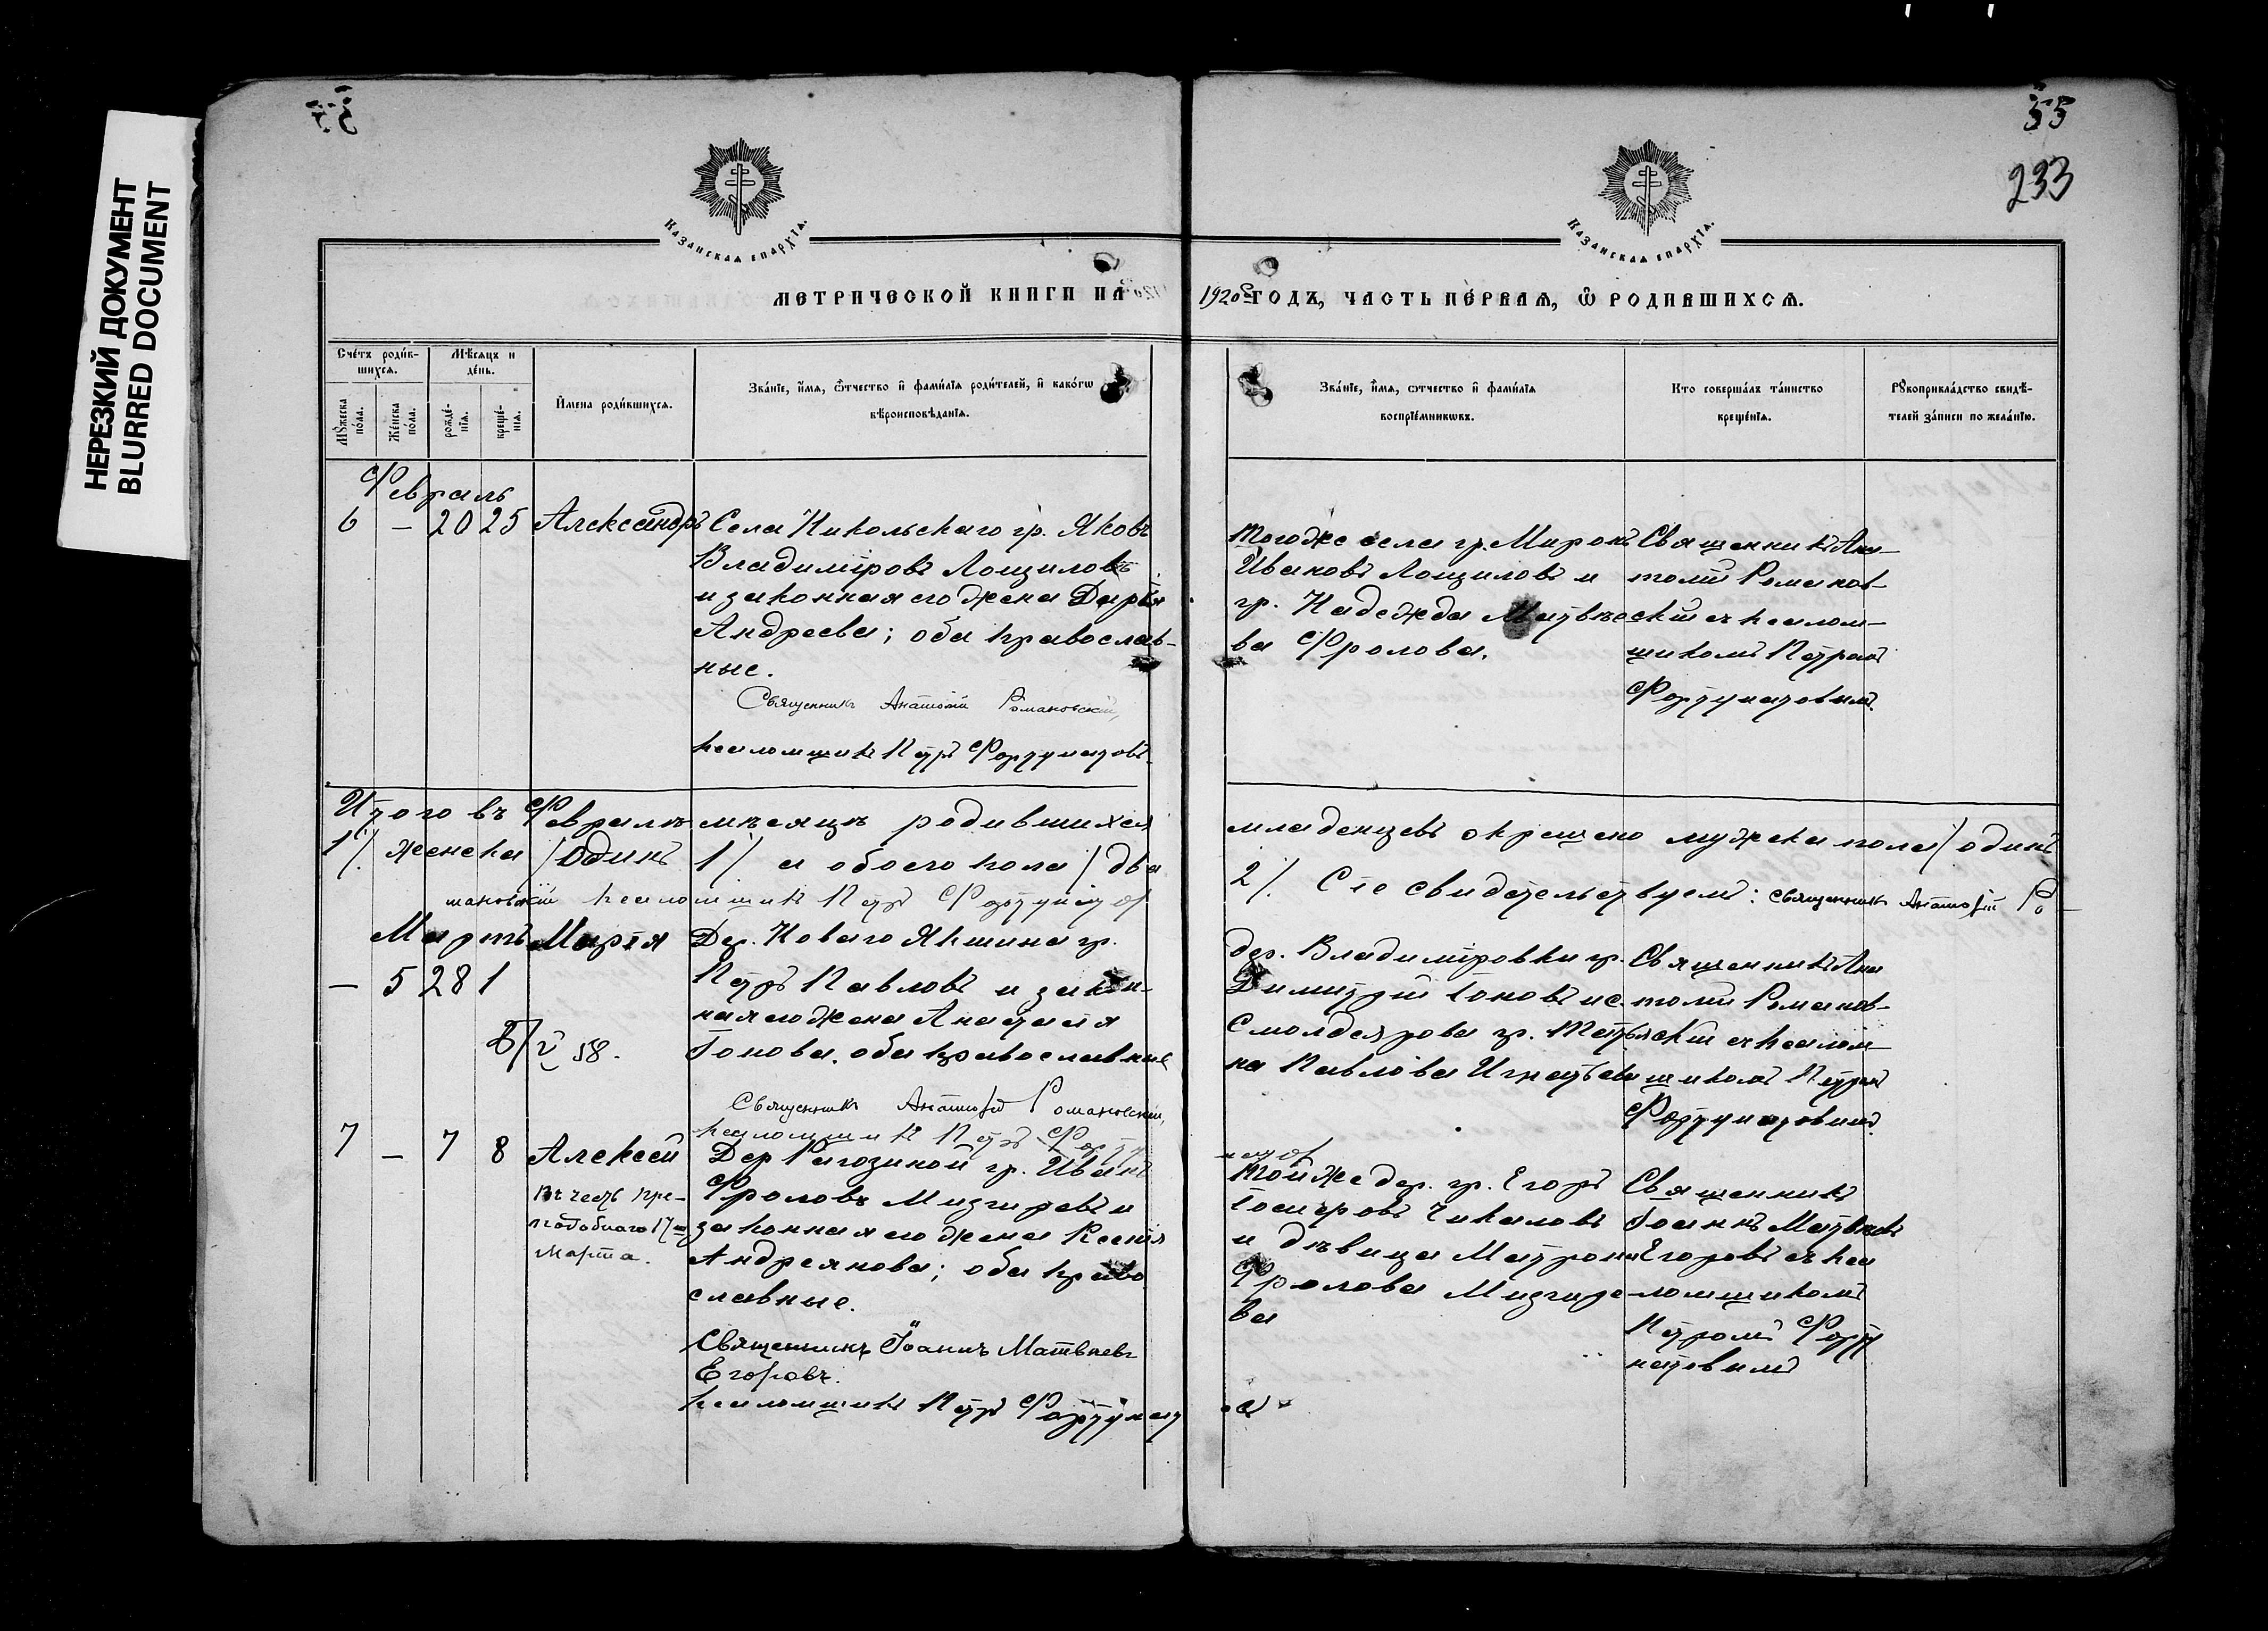 НЕРЕЗКИЙ ДОКУМЕНТ
BLURRED DOCUMENT
55
233
Казанская епархїа.
Казанская епархїа.
МЕТРИЧЕСКОЙ КНИГИ НА 1920 ГОДЪ, ЧАСТЬ ПЕРВАЯ, Ѿ РОДИВШИХСЯ.
Счетъ родив-
шихся.
Мѣсяцъ и
день.
Мꙋжеска
пола.
Женска
пола.
рожде-
нїя.
креще-
нїя.
Имена родившихся.
Званїе, имя, ѿтчество и фамилїя родителей, и какогѡ
вѣроисповѣданїя.
Званїе, имя, ѿтчество и фамилїя
воспрїемникѡвъ.
Кто совершалъ таинство
крещенїя.
Рꙋкоприкладство свидѣ-
телей записи по желанїю.
Февраль
6 – 20 25 Александръ
Села Никольскаго гр. Яковъ
Владиміровъ Лощиловъ
и законная его жена Дарья
Андреева; оба православ-
ные.
Священникъ Анатолій Романовскій,
псаломщикъ Петръ Фортунатовъ.
Тогоже села гр. Миронъ
Ивановъ Лощиловъ и
гр. Надежда Матвѣе
ва Фролова.
Священникъ Ана-
толій Романов-
скій съ псалом-
щикомъ Петромъ
Фортунатовымъ.
Итого въ Февралѣ мѣсяцѣ родившихся младенцевъ окрещено мужска пола/одинъ
1/. женска /одинъ 1/ а обоего пола /два 2/. Сіе свидетельствуемъ: священникъ Анатолій Ро-
мановскій псаломщикъ Петръ Фортунатов
Мартъ
– 5 28 1
Марія
8/V 58.
Дер. Новаго Якшина гр.
Петръ Павловъ и закон-
ная его жена Анастасія
Іонова. оба православные
Священникъ Анатолій Романовскій,
псаломщикъ Петръ Форту
натов
дер. Владиміровки гр.
Димитрій Іоновъ и с.
Смолдеярова гр. Татья
на Павлова Игнатьева
Священникъ Ана
толій Романов-
скій съ псалом-
щикомъ Петромъ
Фортунатовымъ.
7 – 7 8 Алексѣй
въ честь пре-
подобнаго 17го
Марта.
Дер Рагозиной гр. Иванъ
Фроловъ Мизгиревъ и
законная его жена Ксенія
Андреянова; оба право
славные.
Священникъ Іоаннъ Матвѣевъ
Егоровъ.
псаломщикъ Петръ Фортунатов
Той же дер. гр. Егоръ
Чикаловъ
и дѣвица Матрона
Фролова Мизгире-
ва
Священникъ
Іоаннъ Матвѣевъ
Егоровъ съ пса
ломщикомъ
Петромъ Форту
натовымъ